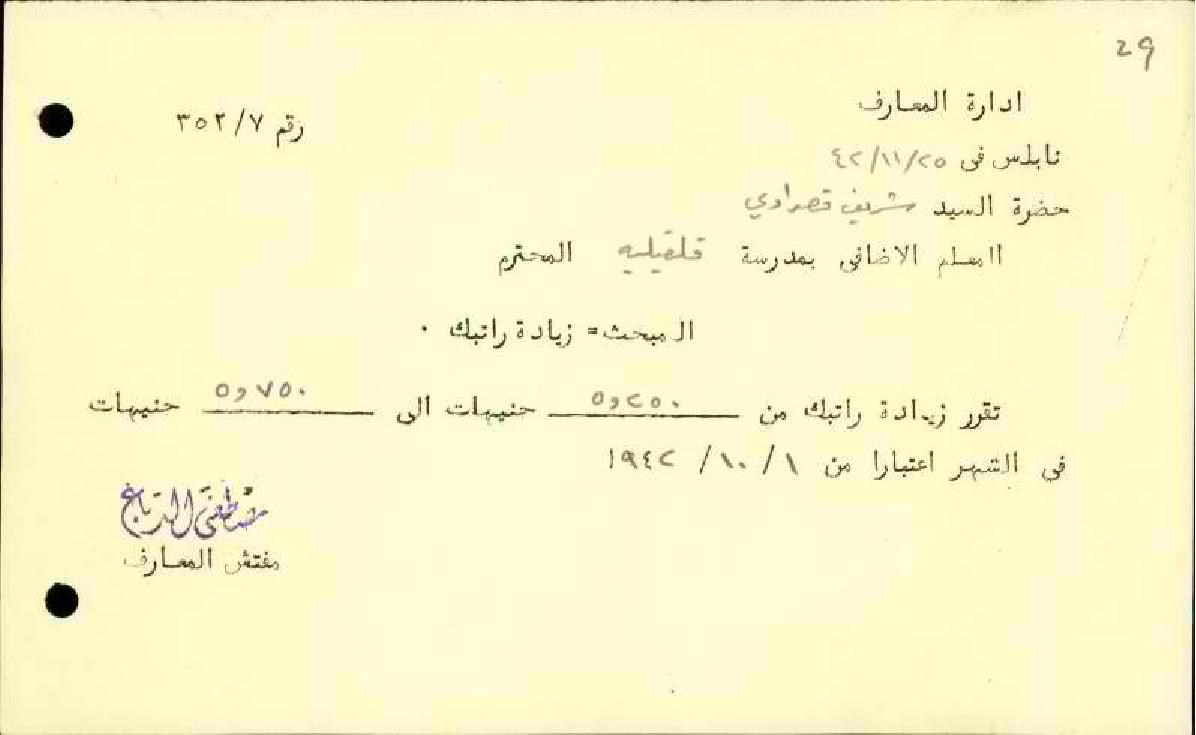 29
ادارة المعارف
رقم ٣٥٢/٧
نابلس فى ٤٢/١١/٢٥
حضرة السيد شريف قصراوي
المعلم الاضافى بمدرسة قلقيليه المحترم
المبحث= زيادة راتبك .
تقرر زيادة راتبك من ٥و٢٥٠ جنيهات الى ٥و٧٥٠ جنيهات
فى الشهر اعتبارا من ١/ ١٠/ ١٩٤٢
مصطفى الدباغ
مفتش المعارف